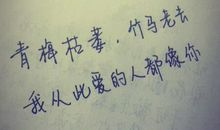 青梅枯萎，竹马老去
我从此爱的人都像你